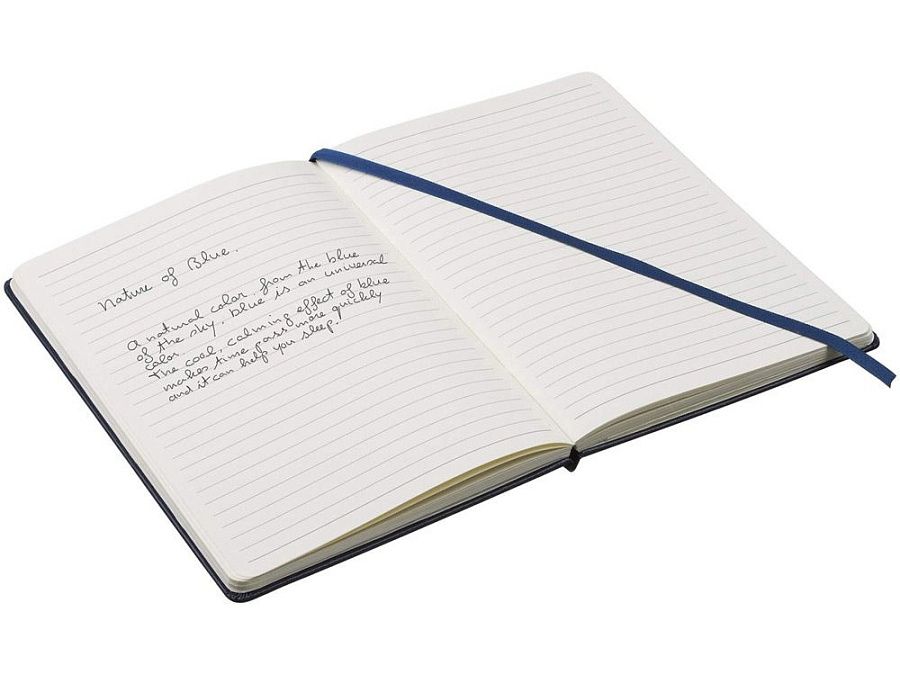 Nature of Blue.
A natural color. from the blue
of the sky. blue is an universal
color.
The cool, calming effect of blue
makes time pass more quickly
and it can help you sleep.